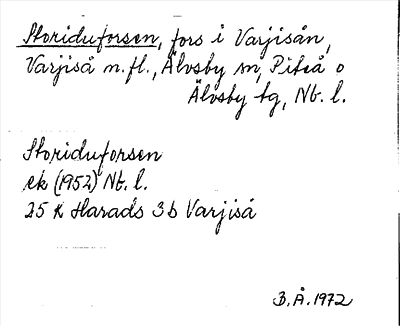 Storiduforsen, fors i Varjisån,
Varjiså n.fl., Älvsby sn, Piteå o
Älvsby tg, Nb. l.
Storiduforsen
ek (1952) Nb. l.
25 K Harads 3b Varjiså
B.Å. 1972